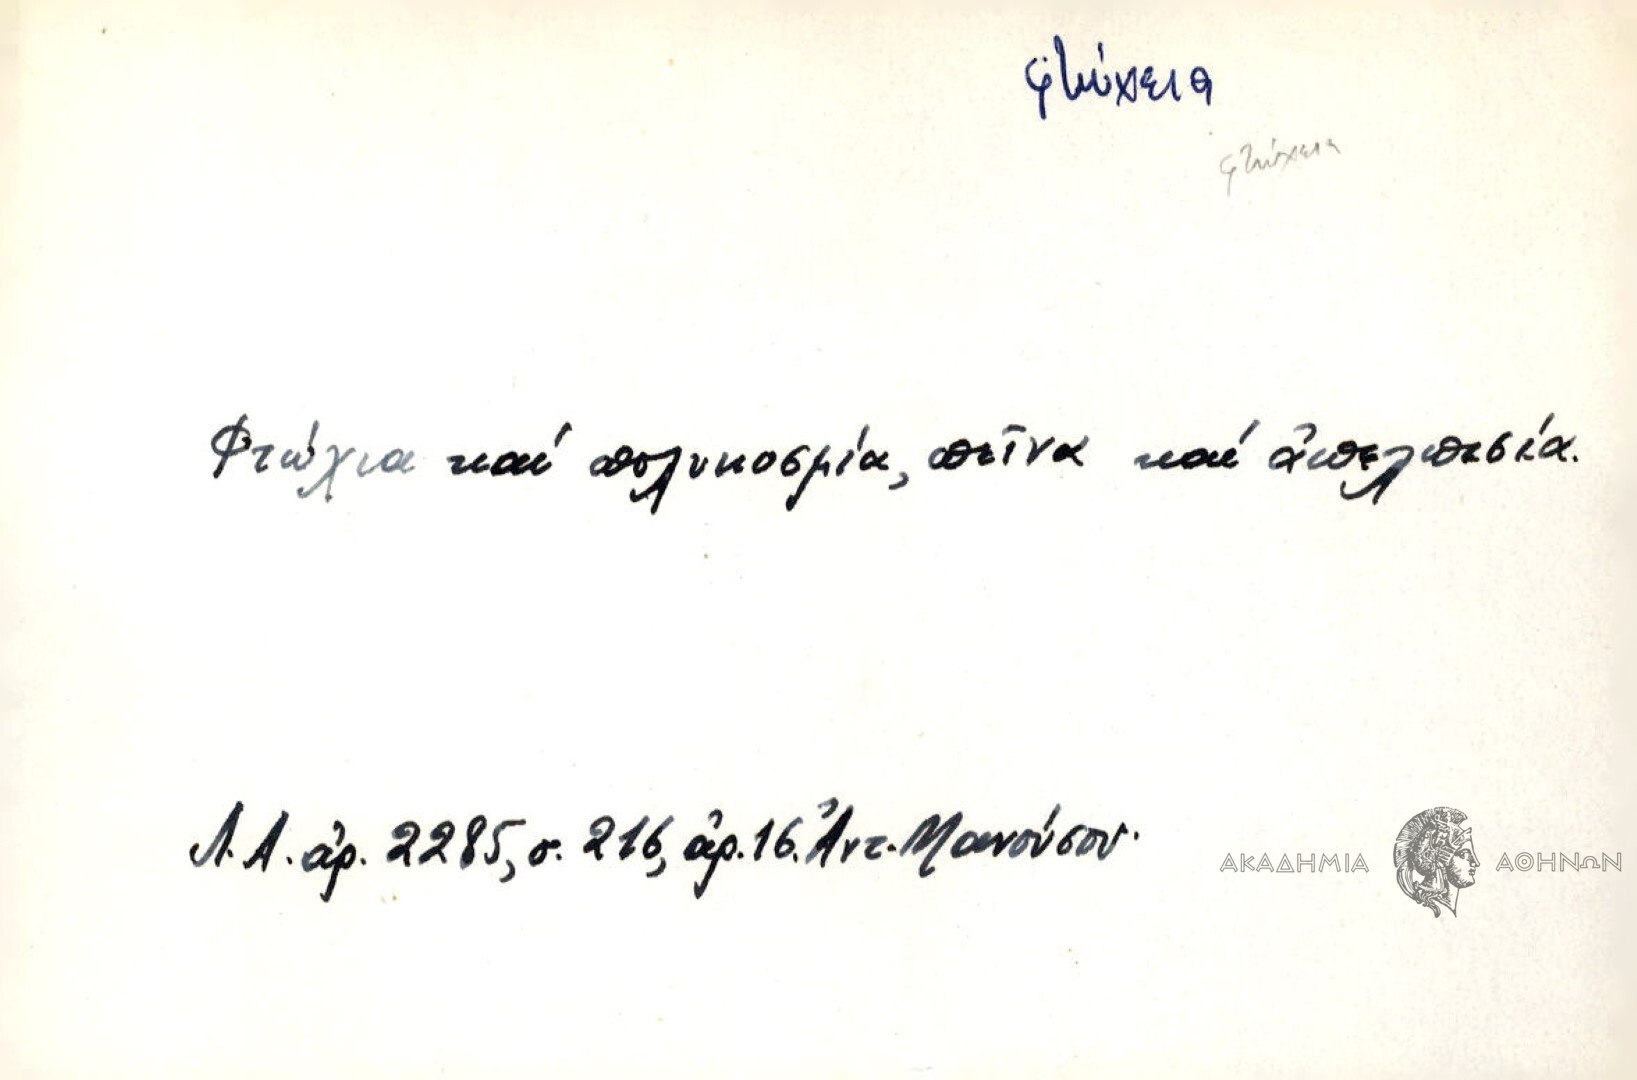 φτώχεια
φτώχεια
Φτώχια καί πολυκοσμία, πεῖνα καί ἀπελπεσία.
Λ.Α. ἀρ. 2285, σ. 216, ἀρ. 16. Ἀντ. Μανούσου.
ΑΚΑΔΗΜΙΑ ΑΘΗΝΩΝ